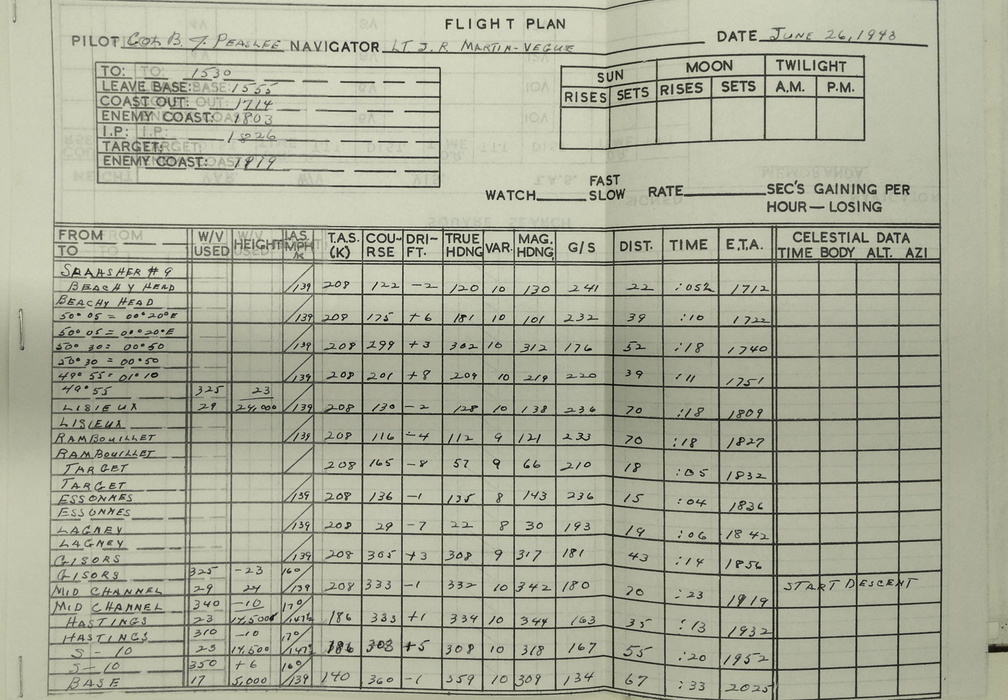 FLIGHT PLAN
PILOT COL B. J. PEASLEE NAVIGATOR LT J. R. MARTIN-VEGUE DATE JUNE 26, 1943
TO: 1530
LEAVE BASE: 1555
COAST OUT: 1714
ENEMY COAST: 1803
I.P.: 1826
TARGET:
ENEMY COAST: 1919
SUN MOON TWILIGHT
RISES SETS RISES SETS A.M. P.M.
WATCH FAST SLOW RATE SEC'S GAINING PER HOUR — LOSING
FROM TO W/V USED HEIGHT I.AS. MPH/K T.A.S. (K) COURSE DRIFT. TRUE HDNG VAR. MAG. HDNG. G/S DIST. TIME E.T.A. CELESTIAL DATA TIME BODY ALT. AZI
SPLASHER #9
BEACHY HEAD 139 208 122 -2 120 10 130 241 22 :05½ 1712
BEACHY HEAD
50° 05 = 00° 20'E 139 208 175 +6 181 10 101 232 39 :10 1722
50° 05 = 00° 20'E
50° 30 = 00° 50 139 208 299 +3 302 10 312 176 52 :18 1740
50° 30 = 00° 50
49° 55 = 01° 10 139 208 201 +8 209 10 219 220 39 :11 1751
49° 55 325 23
LISIEUX 29 24,000 139 208 130 -2 128 10 138 236 70 :18 1809
LISIEUX
RAMBOUILLET 139 208 116 -4 112 9 121 233 70 :18 1827
RAMBOUILLET
TARGET 208 165 -8 57 9 66 210 18 :05 1832
TARGET
ESSONNES 139 208 136 -1 135 8 143 236 15 :04 1836
ESSONNES
LAGNEY 139 208 29 -7 22 8 30 193 19 :06 1842
LAGNEY
GISORS 139 208 305 +3 308 9 317 181 43 :14 1856
GISORS 325 -23 160
MID CHANNEL 29 24 139 208 333 -1 332 10 342 180 70 :23 1919 START DESCENT
MID CHANNEL 340 -10 170
HASTINGS 23 14,500 147½ 186 333 +1 334 10 344 163 35 :13 1932
HASTINGS 310 -10 170
S-10 25 14,500 147½ 186 303 +5 308 10 318 167 55 :20 1952
S-10 350 +6 160
BASE 17 5,000 139 140 360 -1 359 10 309 134 67 :33 2025